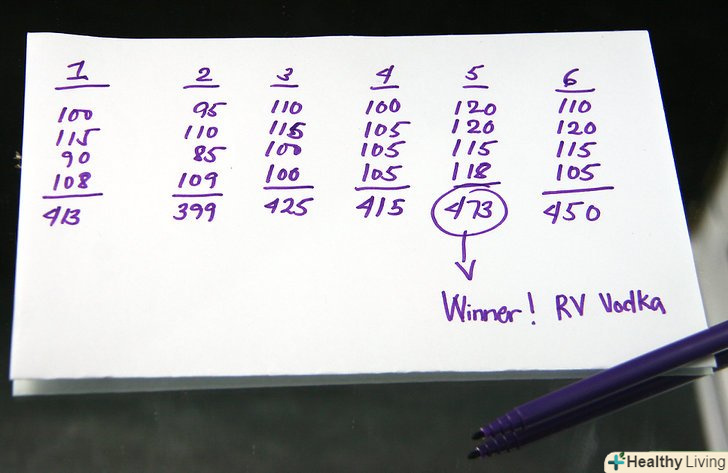 1 2 3 4 5 6
100 95 110 100 120 110
115 110 115 105 120 120
90 85 100 105 115 115
108 109 100 105 118 105
413 399 425 415 473 450
Winner! RV Vodka
Healthy Living